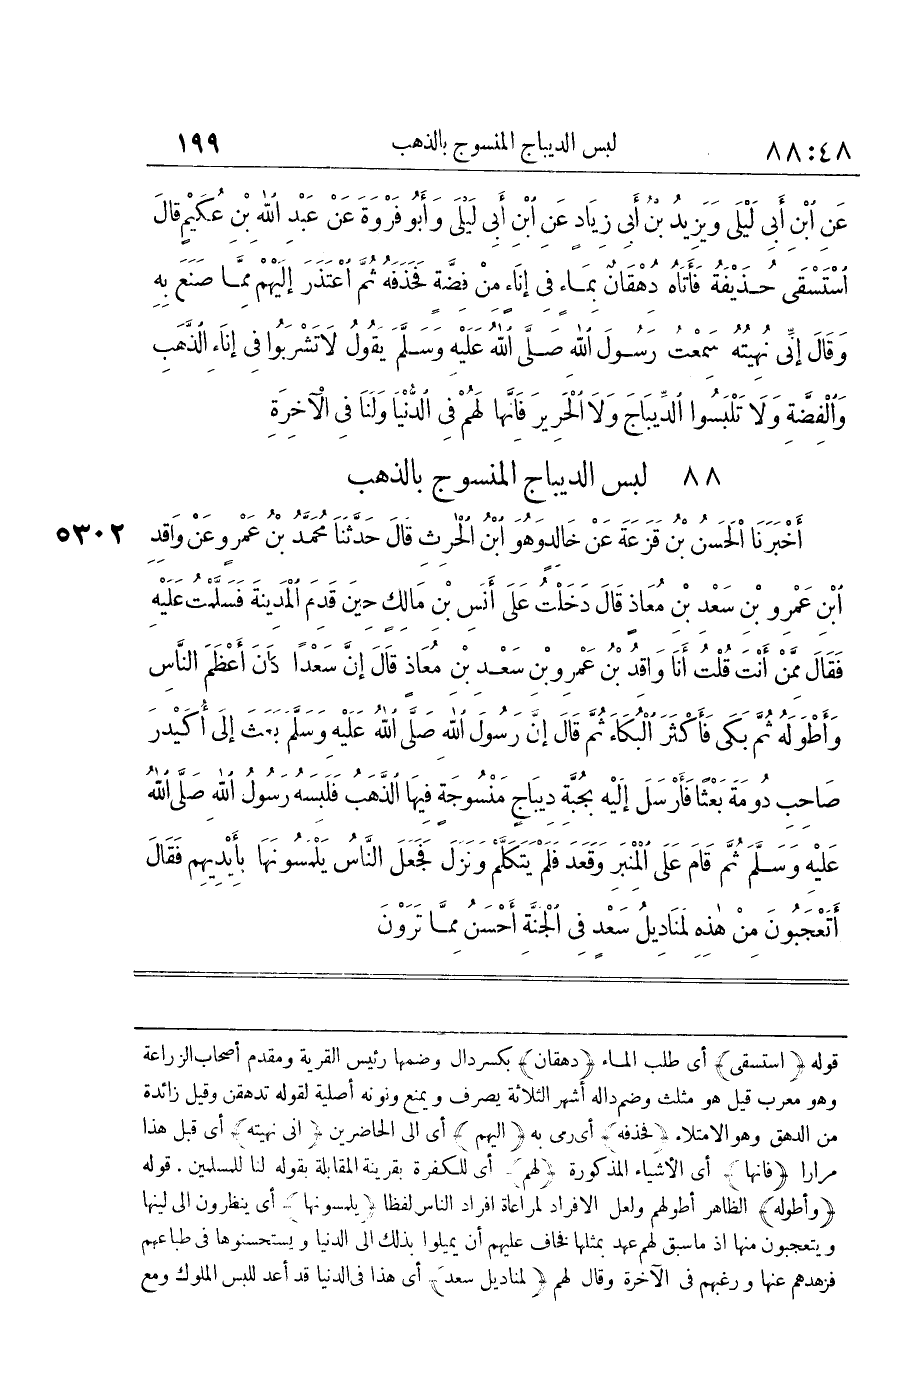 ٨٨:٤٨ لبس الديباج المنسوج بالذهب ١٩٩
عَنِ ابْنِ أَبِى لَيْلَى وَيَزِيدُ بْنُ أَبِى زِيَادٍ عَنِ ابْنِ أَبِى لَيْلَى وَأَبُو فَرْوَةَ عَنْ عَبْدِ اللهِ بْنِ عُكَيْمٍ قَالَ
اسْتَسْقَى حُذَيْفَةُ فَأَتَاهُ دُهْقَانٌ بِمَاءٍ فِى إِنَاءٍ مِنْ فِضَّةٍ فَحَذَفَهُ ثُمَّ اعْتَذَرَ إِلَيْهِمْ مِمَّا صَنَعَ بِهِ
وَقَالَ إِنِّى نُهِيتُهُ سَمِعْتُ رَسُولَ اللهِ صَلَّى اللهُ عَلَيْهِ وَسَلَّمَ يَقُولُ لَا تَشْرَبُوا فِى إِنَاءِ الذَّهَبِ
وَالْفِضَّةِ وَلَا تَلْبَسُوا الدِّيبَاجَ وَلَا الْحَرِيرَ فَإِنَّهَا لَهُمْ فِى الدُّنْيَا وَلَنَا فِى الْآخِرَةِ
٨٨ لبس الديباج المنسوج بالذهب
أَخْبَرَنَا الْحَسَنُ بْنُ قَزَعَةَ عَنْ خَالِدٍ وَهُوَ ابْنُ الْحٰرِثِ قَالَ حَدَّثَنَا مُحَمَّدُ بْنُ عَمْرٍو عَنْ وَاقِدِ ٥٣٠٢
ابْنِ عَمْرِو بْنِ سَعْدِ بْنِ مُعَاذٍ قَالَ دَخَلْتُ عَلَى أَنَسِ بْنِ مَالِكٍ حِينَ قَدِمَ الْمَدِينَةَ فَسَلَّمْتُ عَلَيْهِ
فَقَالَ مِمَّنْ أَنْتَ قُلْتُ أَنَا وَاقِدُ بْنُ عَمْرِو بْنِ سَعْدِ بْنِ مُعَاذٍ قَالَ إِنَّ سَعْدًا كَانَ أَعْظَمَ النَّاسِ
وَأَطْوَلَهُ ثُمَّ بَكَى فَأَكْثَرَ الْبُكَاءَ ثُمَّ قَالَ إِنَّ رَسُولَ اللهِ صَلَّى اللهُ عَلَيْهِ وَسَلَّمَ بَعَثَ إِلَى أُكَيْدِرَ
صَاحِبِ دُومَةَ بَعْثًا فَأَرْسَلَ إِلَيْهِ بِجُبَّةِ دِيبَاجٍ مَنْسُوجَةٍ فِيهَا الذَّهَبُ فَلَبِسَهُ رَسُولُ اللهِ صَلَّى اللهُ
عَلَيْهِ وَسَلَّمَ ثُمَّ قَامَ عَلَى الْمِنْبَرِ وَقَعَدَ فَلَمْ يَتَكَلَّمْ وَنَزَلَ فَجَعَلَ النَّاسُ يَلْمِسُونَهَا بِأَيْدِيهِمْ فَقَالَ
أَتَعْجَبُونَ مِنْ هٰذِهِ لَمَنَادِيلُ سَعْدٍ فِى الْجَنَّةِ أَحْسَنُ مِمَّا تَرَوْنَ
قوله ﴿استسقى﴾ أى طلب الماء ﴿دهقان﴾ بكسر دال وضمها رئيس القرية ومقدم أصحاب الزراعة
وهو معرب قيل هو مثلث وضم داله أشهر الثلاثة يصرف و يمنع ونونه أصلية لقوله تدهقن وقيل زائدة
من الدهق وهو الامتلاء ﴿فحذفه﴾ أى رمى به ﴿اليهم﴾ أى الى الحاضرين ﴿انى نهيته﴾ أى قبل هذا
مرارا ﴿فانها﴾ أى الأشياء المذكورة ﴿لهم﴾ أى للكفرة بقرينة المقابلة بقوله لنا للمسلمين . قوله
﴿وأطوله﴾ الظاهر أطولهم ولعل الافراد لمراعاة افراد الناس لفظا ﴿يلمسونها﴾ أى ينظرون الى لينها
و يتعجبون منها اذ ماسبق لهم عهد بمثلها فخاف عليهم أن يميلوا بذلك الى الدنيا و يستحسنوها فى طباعهم
فزهدهم عنها و رغبهم فى الآخرة وقال لهم ﴿لمناديل سعد﴾ أى هذا فى الدنيا قد أعد للبس الملوك ومع